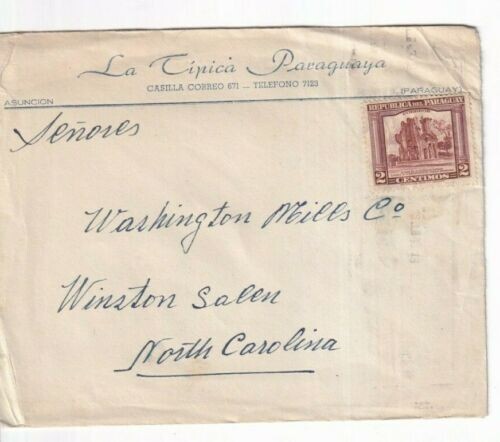 La Típica Paraguaya
CASILLA CORREO 671 — TELEFONO 7123
ASUNCION (PARAGUAY)
REPUBLICA DEL PARAGUAY
2 CENTIMOS 2
Señores
Washington Mills Co
Winston Salen
North Carolina